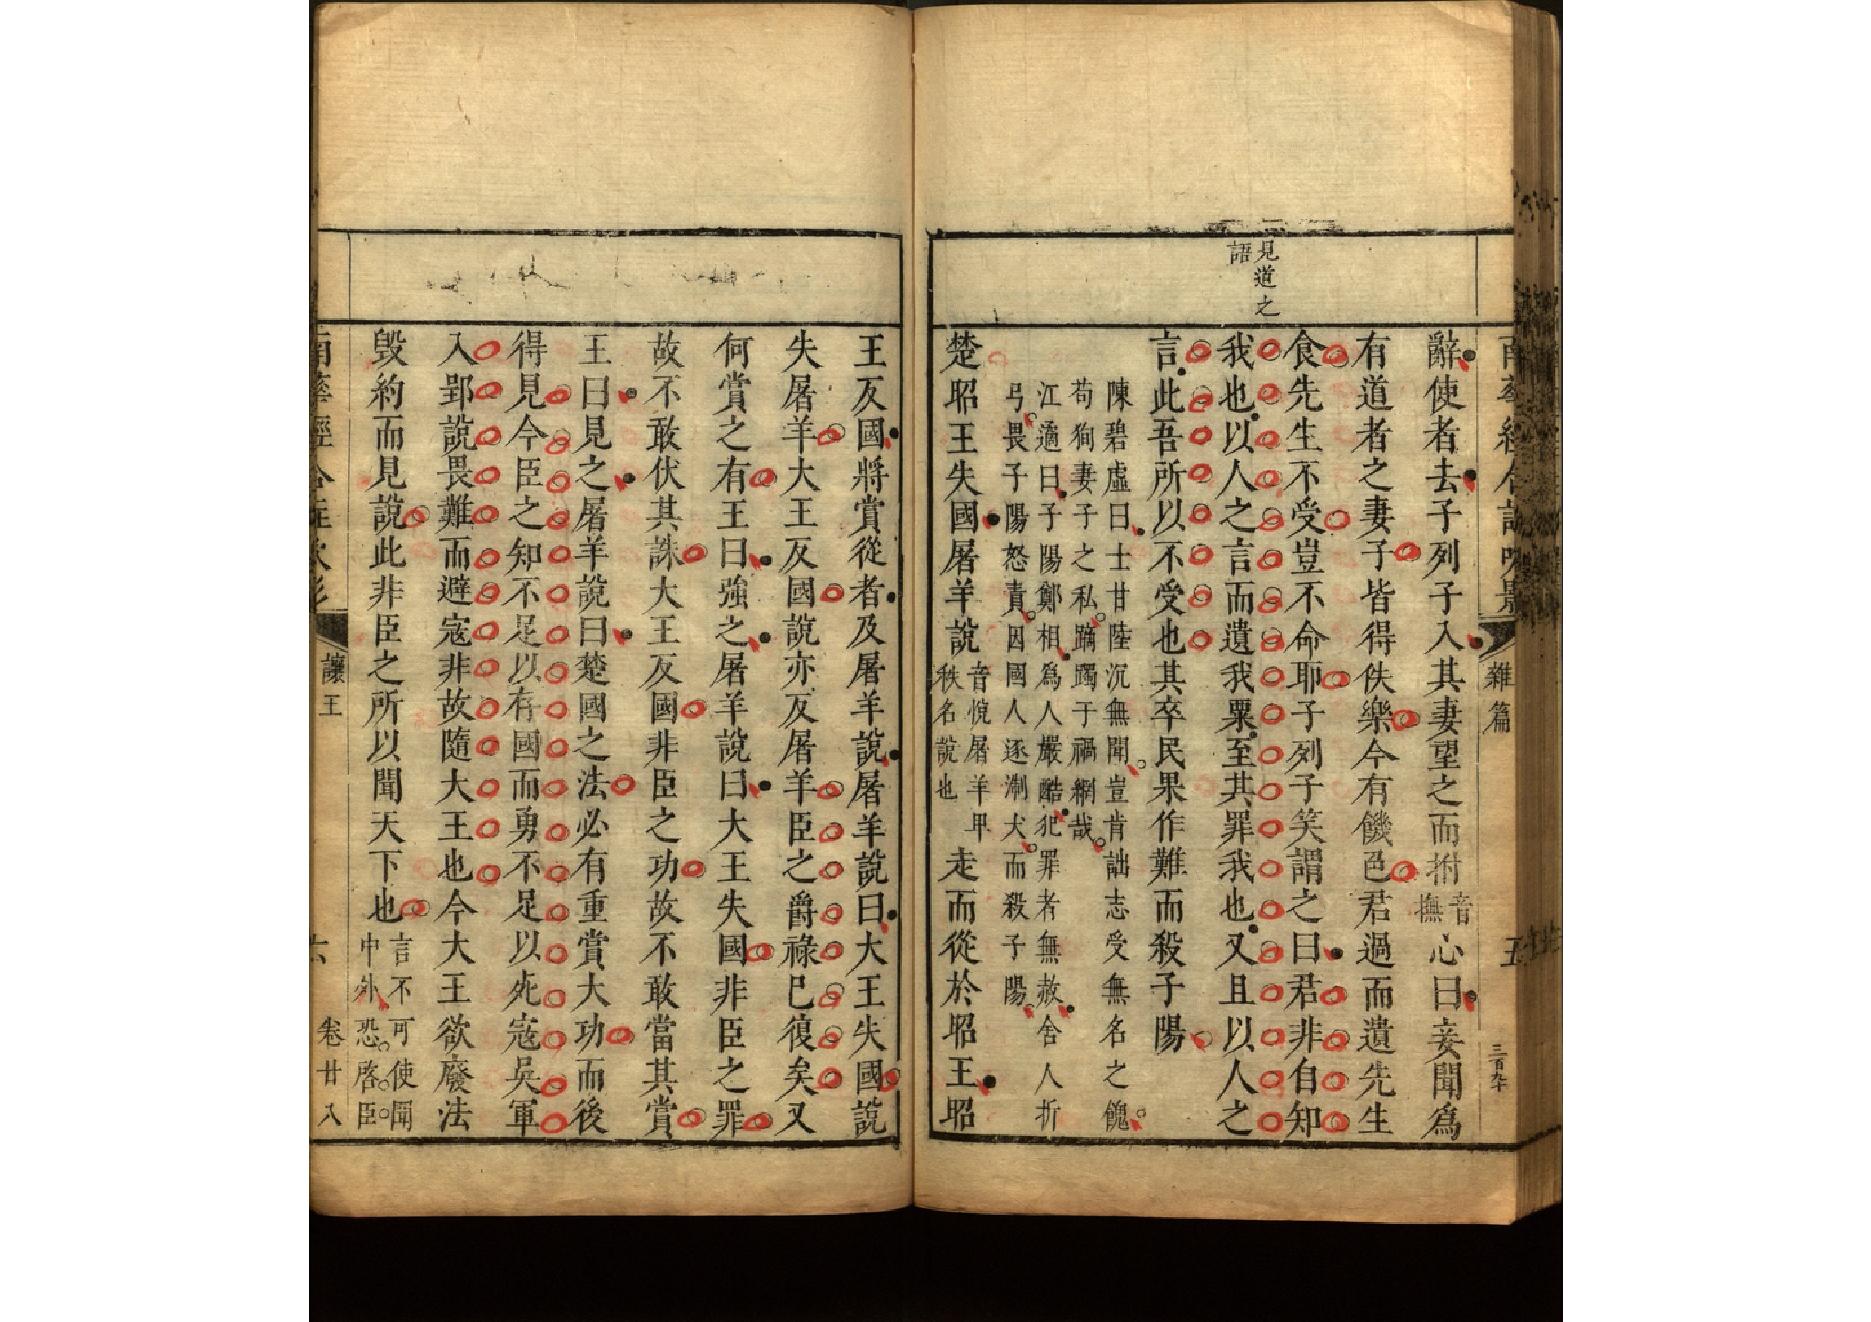 見道之
語
雜篇
五
三百九十
辭使者去子列子入其妻望之而拊音撫心曰妾聞為
有道者之妻子皆得佚樂今有饑色君過而遺先生
食先生不受豈不命耶子列子笑謂之曰君非自知
我也以人之言而遺我粟至其罪我也又且以人之
言此吾所以不受也其卒民果作難而殺子陽
陳碧虛曰士甘陸沉無聞豈肯詘志受無名之餽
苟狥妻子之私蹢躅于禍網哉
江遹曰子陽鄭相為人嚴酷犯罪者無赦舍人折
弓畏子陽怒責因國人逐瘈犬而殺子陽
楚昭王失國屠羊說音悅屠羊甲秩名說也走而從於昭王昭
王反國將賞從者及屠羊說屠羊說曰大王失國說
失屠羊大王反國說亦反屠羊臣之爵祿已復矣又
何賞之有王曰強之屠羊說曰大王失國非臣之罪
故不敢伏其誅大王反國非臣之功故不敢當其賞
王曰見之屠羊說曰楚國之法必有重賞大功而後
得見今臣之知不足以存國而勇不足以死寇吳軍
入郢說畏難而避寇非故隨大王也今大王欲廢法
毀約而見說此非臣之所以聞天下也言不可使聞中外恐啓臣
讓王
六
卷廿八